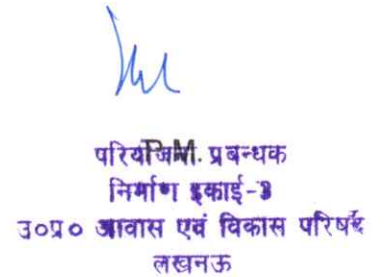 परियोजना प्रबन्धक
P.M.
निर्माण इकाई-3
उ०प्र० आवास एवं विकास परिषद
लखनऊ